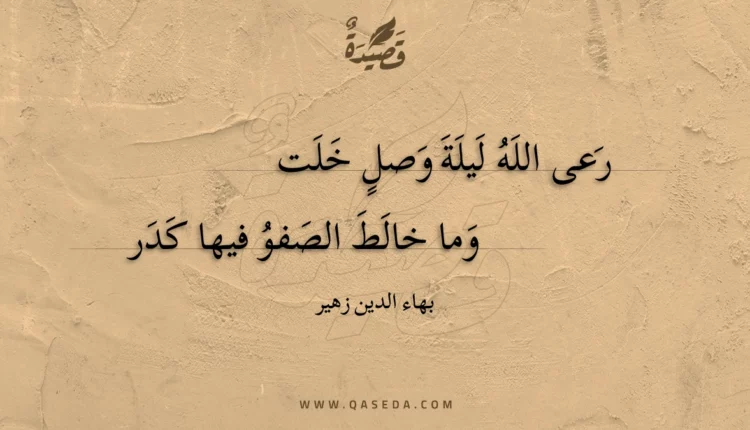 قَصِيدَةٌ
رَعى اللَهُ لَيلَةَ وَصلٍ خَلَت
وَما خالَطَ الصَفوُ فيها كَدَر
بهاء الدين زهير
WWW.QASEDA.COM